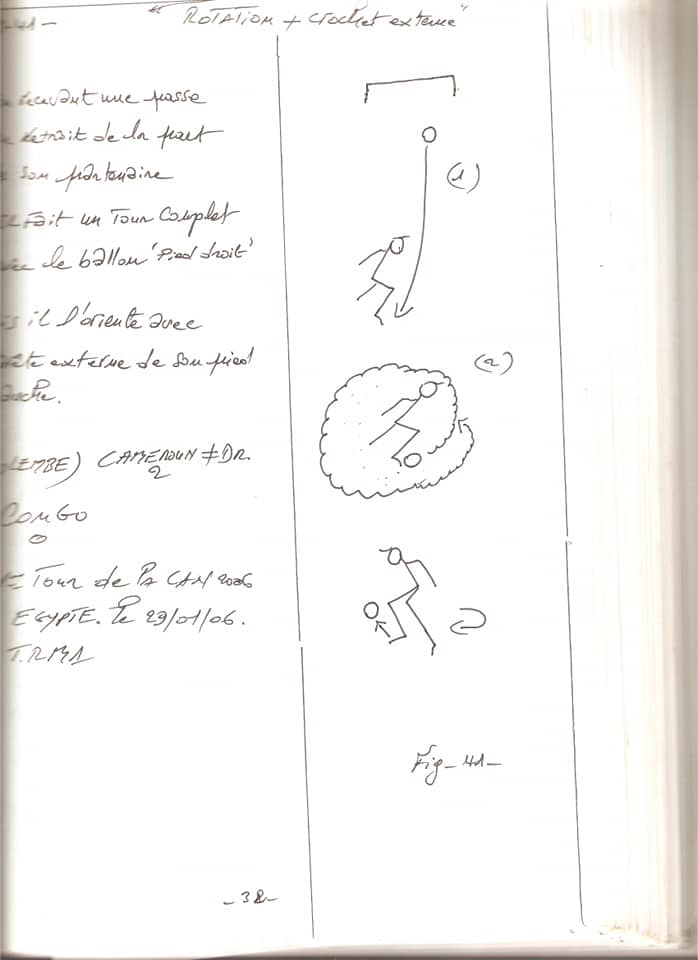 -41-
" ROTATION + crochet externe "
recevant une passe
retrait de la part
son partenaire
Il fait un Tour complet
avec le ballon 'Pied droit'
(1)
is il l'oriente avec
côté externe de son pied
gauche.
(2)
LEMBE) CAMEROUN ≠ DR.
2
CONGO
0
Tour de la CAN 2006
EGYPTE. le 29/01/06.
T.RMA
Fig-41-
-38-